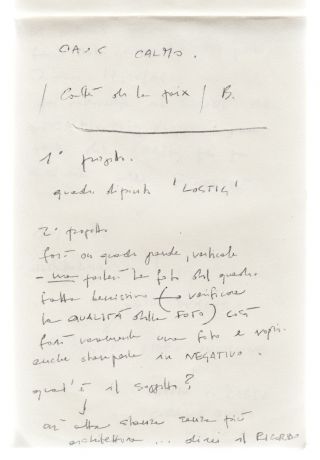 CALMO.
/ de la paix / B.
1° progetto.
quadri dipinti 'LOSTIG'
2° progetto
farò un quadro grande, verticale
- una foto del quadro
fatta benissimo (→ verificare
la QUALITÀ della FOTO) così
farò veramente una foto e
anche stamparla in NEGATIVO.
qual'è il soggetto?
↓
un' altra stanza senza più
architettura ... direi il RICORDO